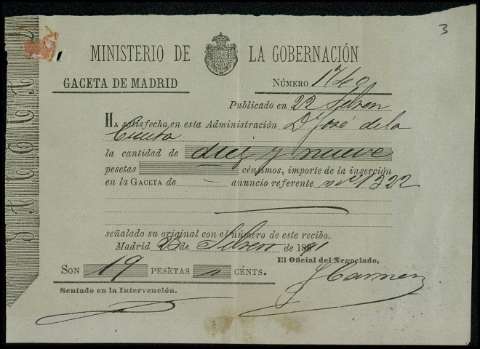 3
MINISTERIO DE LA GOBERNACIÓN
GACETA DE MADRID
NÚMERO 1749
Publicado en 22 Febrero
HA satisfecho en esta Administración D José de la
Cuesta
la cantidad de diez y nueve
pesetas céntimos, importe de la inserción
en la GACETA de anuncio referente nº 1322
señalado su original con el número de este recibo.
Madrid 23 de Febrero de 1891
El Oficial del Negociado,
SON 19 PESETAS CÉNTS.
Sentado en la Intervención.